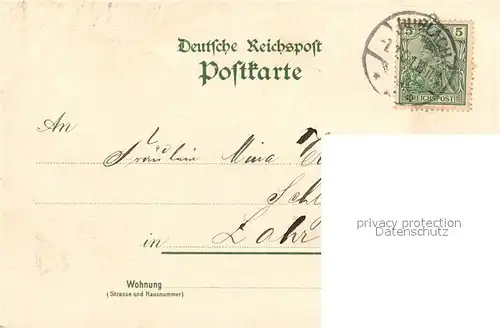 5 5
REICHSPOST
Deutsche Reichspost
Postkarte
An
Fräulein Mina
Schl
in Lahr
privacy protection
Datenschutz
Wohnung
(Strasse und Hausnummer)